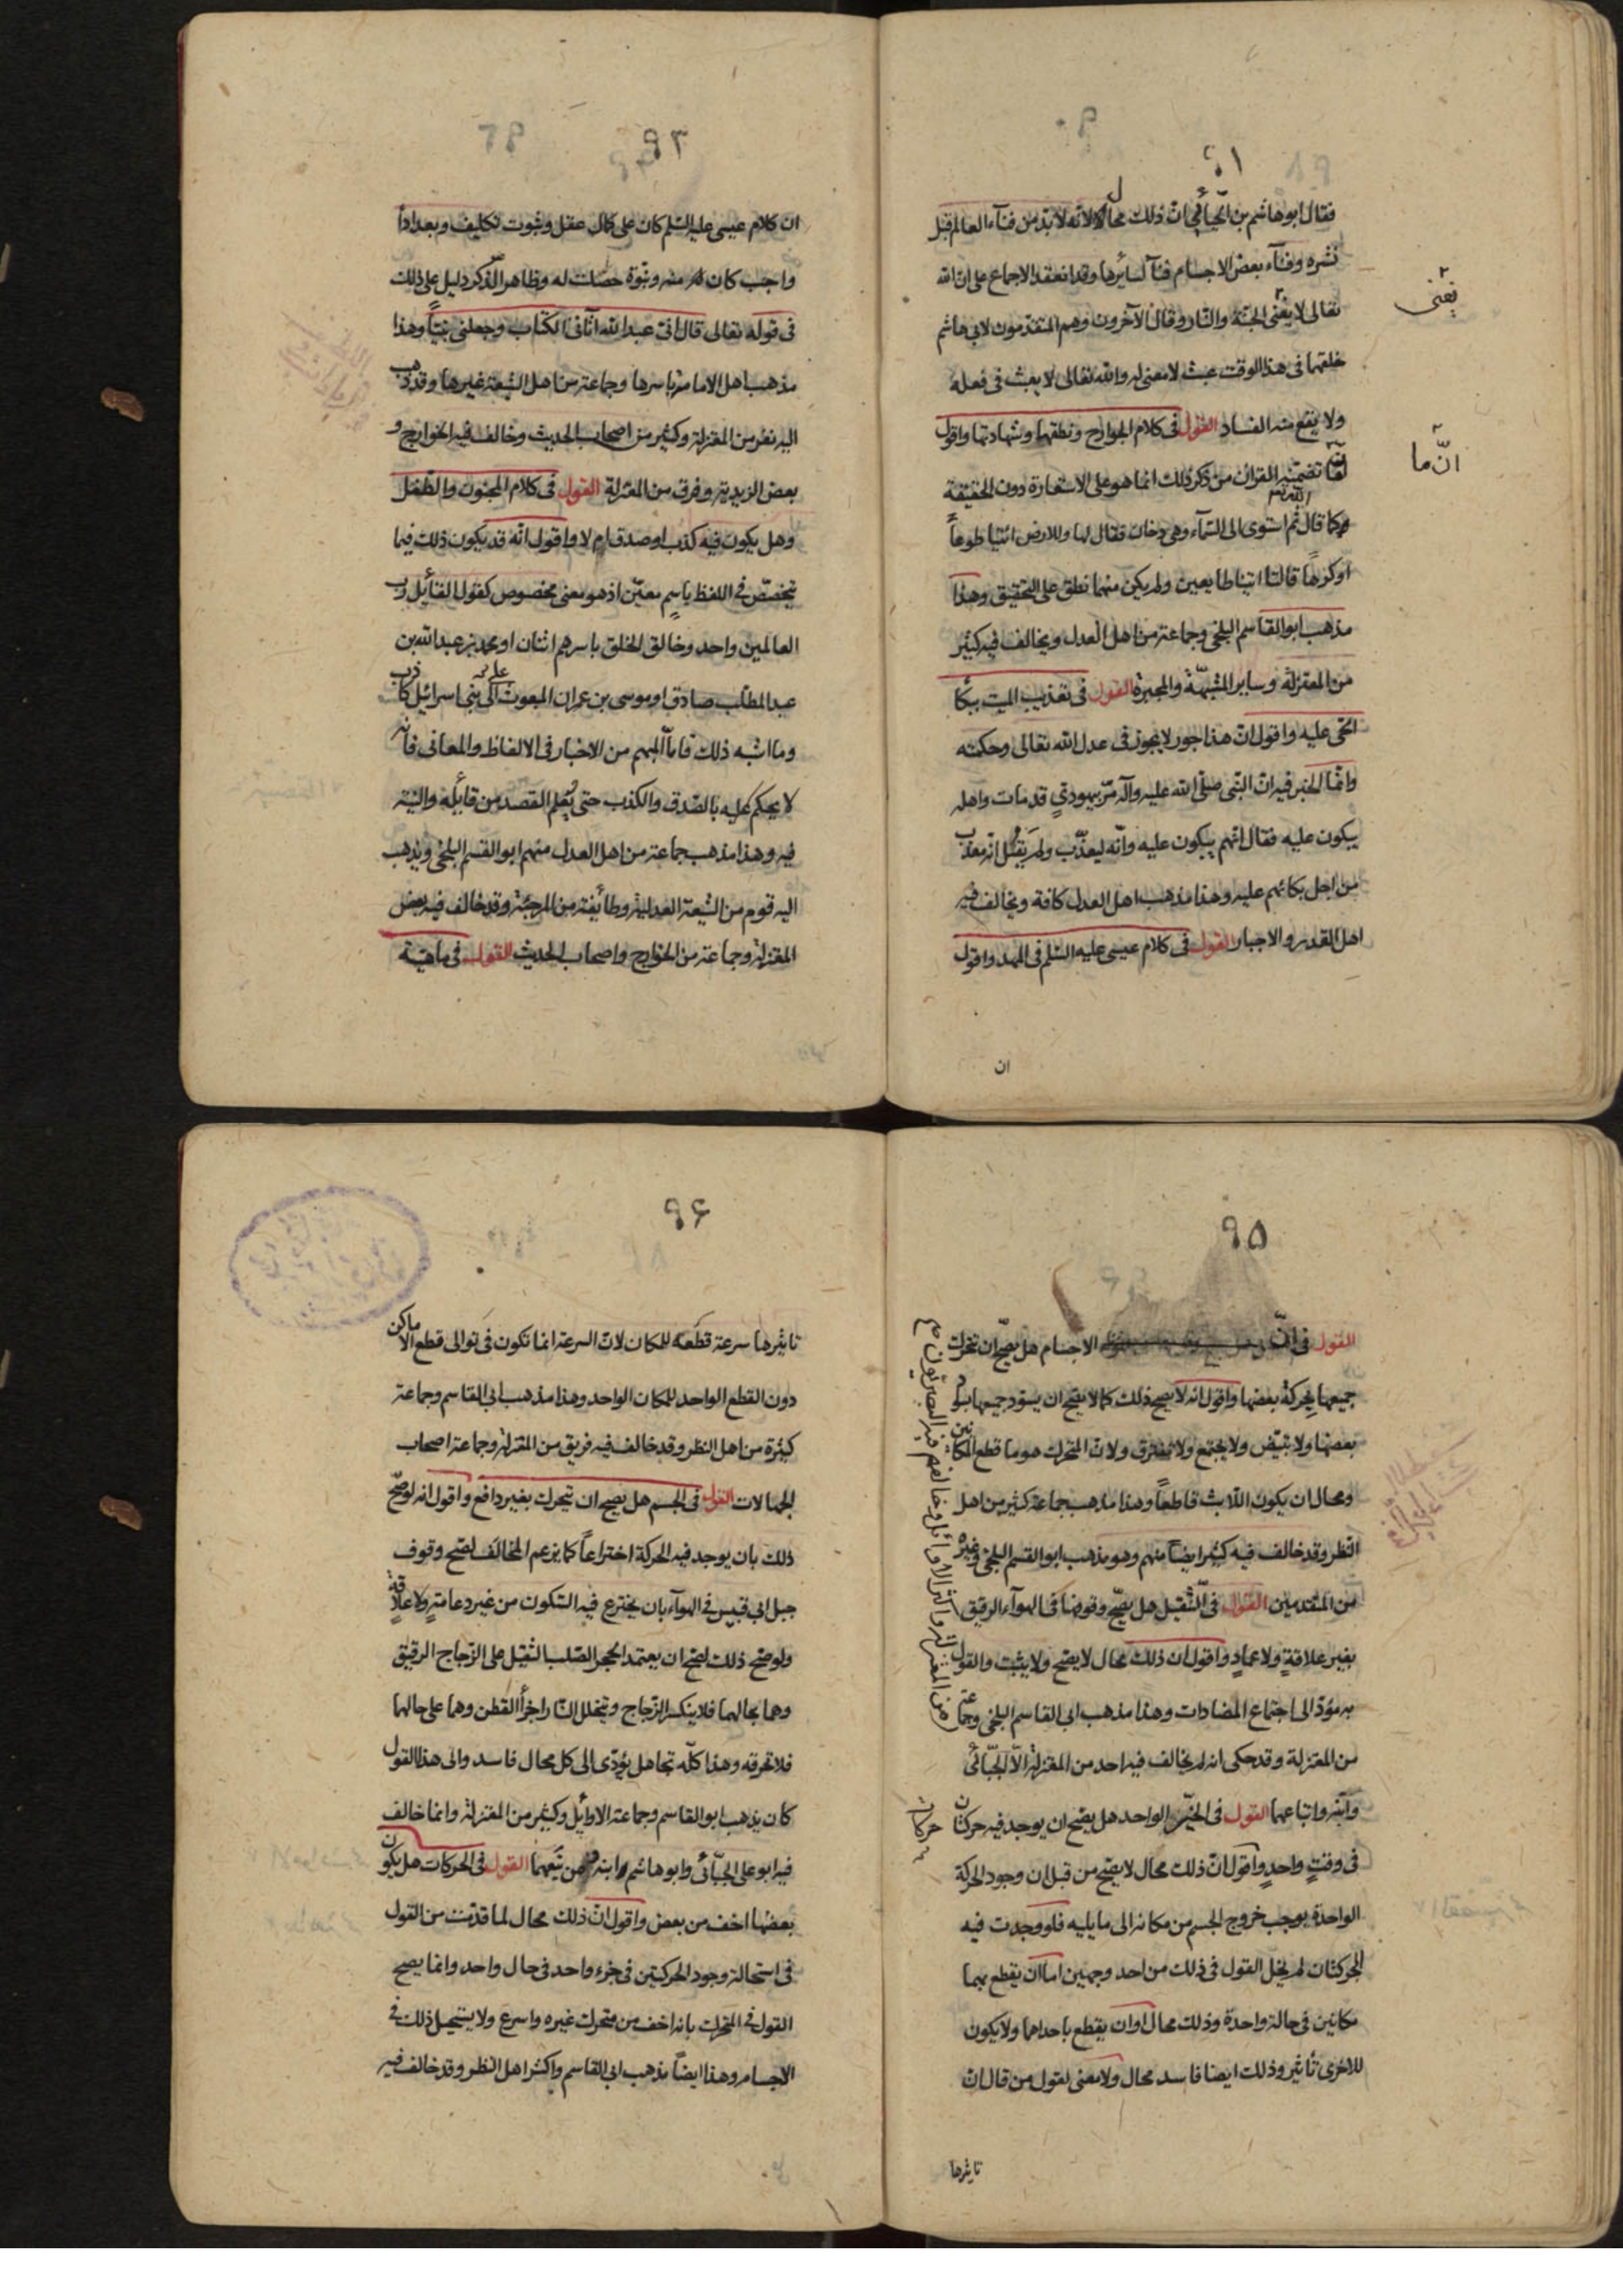 ٩١
فقال ابو هاشم بن الجبائی ان ذلك محال لانه لا بد من فنآء العالم قبل
نشره وفنآء بعض الاجسام فنآ لسائرها وقد انعقد الاجماع على ان الله
تعالى لا يفنى الجنّة والنّار وقال الآخرون وهم المتقدمون لابی هاشم
خلقهما فی هذا الوقت عبث لا معنى له والله تعالى لا يعبث فی فعله
ولا يقع منه الفساد القول فی كلام الجوارح ونطقها وشهادتها واقول
تضمّنه القرآن من ذكر ذلك انما هو على الاستعارة دون الحقيقة
كما قال الله تع ثم استوى الى السّمآء وهی دخان فقال لها وللارض ائتيا طوعاً
اوكرهاً قالتا اتينا طايعين ولم يكن منهما نطق على التحقيق وهذا
مذهب ابو القاسم البلخی وجماعة من اهل العدل ويخالف فيه كثير
من المعتزلة وساير المشبّهة والمجبرة القول فی تعذيب الميت ببكآ
الحی عليه واقول انّ هذا جور لا يجوز فی عدل الله تعالى وحكمته
وانّما الخبر فيه انّ النبّی صلّى الله عليه وآله مرّ بيهودیٍ قد مات واهله
يبكون عليه فقال انّهم يبكون عليه وانّه ليعذّب ولم يَقُل انّه معذّب
من اجل بكائهم عليه وهذا مذهب اهل العدل كافة ويخالف فيه
اهل القدر والاجبار القول فی كلام عيسى عليه السّلم فی المهد واقول
ان
يفنی
انّ ما
٩٢
ان كلام عيسى عليه السّلم كان على كمال عقل وثبوت تكليف وبعد اداً
واجب كان منه ونبّوة حصلت له وظاهر الّذكر دليل على ذلك
فی قوله تعالى قال انّی عبد الله آتانی الكتاب وجعلنی نبيّاً وهذا
مذهب اهل الامامة باسرها وجماعة من اهل الشيعة غيرها وقد ذهب
اليه نفر من المعتزلة وكثير من اصحاب الحديث وخالف فيه الخوارج و
بعض الزيديّة وفرق من المعتزلة القول فی كلام المجنون والطفل
وهل يكون فيه كذب او صدق ام لا واقول انّه قد يكون ذلك فيما
تخصّص فی اللفظ باسم معيّن اذ هو معنی مخصوص كقول القائل رب
العالمين واحد وخالق الخلق باسرهم اثنان او محمد بن عبد الله بن
عبد المطّلب صادق او موسى بن عمران المبعوث الى بنی اسرائيل كاذب
وما اشبه ذلك فامّآ المبهم من الاخبار فی الالفاظ والمعانی فانّه
لا يحكم عليه بالصّدق والكذب حتى يُعلم القصد من قايله والنيّة
فيه وهذا مذهب جماعة من اهل العدل منهم ابو القسم البلخی ويذهب
اليه قوم من الشيعة العدلية وطائفة من المرجئة وقد خالف فيه بعض
المعتزلة وجماعة من الخوارج واصحاب الحديث القول فی ماهيّة
٩٥
القول فی انّ الاجسام هل يصّح ان تتحرك
جميعها بحركة بعضها واقول انه لا يصح ذلك كما لا يصح ان يسوّد جميعها بسواد
بعضها ولا تبيّض ولا يجتمع ولا تفترق ولانّ المتحرك هو ما قطع المكانين
ومحال ان يكون اللّابث قاطعاً وهذا مذهب جماعة كثيرة من اهل
النظر وقد خالف فيه كثير ايضاً منهم وهو مذهب ابو القسم البلخی وغيره
من المتقدمين القول فی الثّقيل هل يصّح وقوفه فی الهوآء الرقيق
بغير علاقةٍ ولا عمادٍ واقول ان ذلك محال لا يصّح ولا يثبت والقول
به مؤدّ الى اجتماع المضادات وهذا مذهب ابی القاسم البلخی وجماعة
من المعتزلة وقد حكى انه لم يخالف فيه احد من المعتزلة الاّ الجبّائی
وابنه واتباعهما القول فی الجزء الواحد هل يصّح ان يوجد فيه حركتان
فی وقتٍ واحدٍ واقول انّ ذلك محال لا يصّح من قبل ان وجود الحركة
الواحدة يوجب خروج الجسم من مكانه الى ما يليه فلو وجدت فيه
الحركتان لم يخل القول فی ذلك من احد وجهين اما ان يقطع بهما
مكانين فی حالة واحدة وذلك محال او ان يقطع باحداهما ولا يكون
للاخرى تأثير وذلك ايضا فاسد محال ولا معنى لقول من قال انّ
تاثيرها
حركتان
٩٦
تاثيرها سرعة قطعه للمكان لانّ السرعة انما تكون فی توالى قطع الاماكن
دون القطع الواحد للمكان الواحد وهذا مذهب ابی القاسم وجماعة
كثيرة من اهل النظر وقد خالف فيه فريق من المعتزلة وجماعة اصحاب
الجهالات القول فی الجسم هل يصح ان تتحرك بغير دافع واقول انه لو صّح
ذلك بان يوجد فيه الحركة اختراعاً كما يزعم المخالف لصّح وقوف
جبل ابی قبيس فی الهوآء بان يخترع فيه السّكون من غير دعامةٍ ولا علاقة
ولو صح ذلك لصّح ان يعتمد الحجر الصّلب الثقيل على الزّجاج الرقيق
وهما بحالهما فلا ينكسر الزّجاج وتتخلل النّار اجزأ القطن وهما على حالهما
فلا تحرقه وهذا كلّه تجاهل يؤدّى الى كل محال فاسد والى هذا القول
كان يذهب ابو القاسم وجماعة الاوايل وكثير من المعتزلة وانما خالف
فيه ابو على الجبّائی وابو هاشم ابنه ومن تبعهما القول فی الحركات هل يكون
بعضُها اخف من بعض واقول انّ ذلك محال لما قدمت من القول
فی استحالة وجود الحركتين فی جزء واحد فی حال واحد وانما يصح
القول فی المتحرك بانه اخف من متحرك غيره واسرع ولا يستحيل ذلك فی
الاجسام وهذا ايضاً مذهب ابی القاسم واكثر اهل النظر وقد خالف فيه